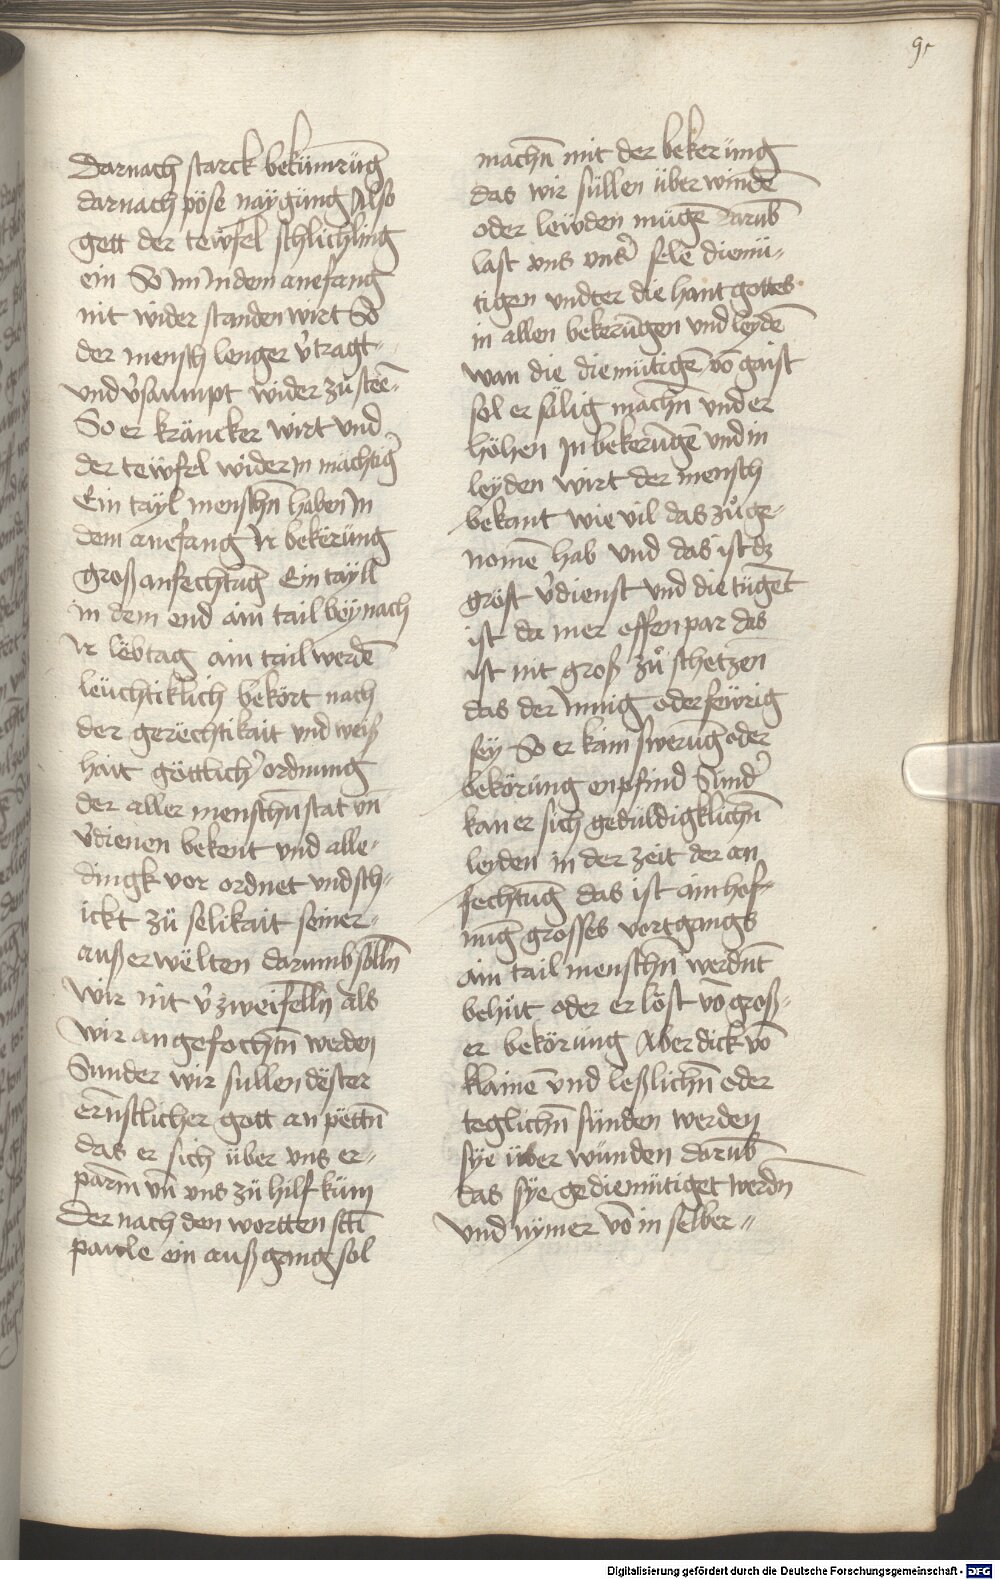 91
Darnach starck bekümrūg
darnach pöse naÿgüng Also
gett der tewfel schlichling
ein So im Indem anefang
nit wider standen wirt So
der mensch lenger v̓tragt
und v̓saumpt wider zu steē
So er kräncker wirt und
der tewfel wider in mächtig̓
Ein täyl menschn̄ haben In
dem anefang Ir bekërüng
groß anfechtūg Ein täyll
In dem end aim tail beÿ nach
Ir lëbtag aim tail werdē
leüchtiklich bekört nach
der gerëchtikait und weiß
hait göttlich̓ ordnung
der aller menschn̄ stat un̄
v̓dienen bekent und alle-
dingk vor ordnet und sch-
ickt zü selikait seiner
auß erwëlten darumb sölln̄
wir nit v̓zweifelln̄ als
wir angefochtn̄ werden
Sunder wir sullen dëster
ernstlicher gott an pëttn̄
das er sich über uns er-
parm un̄ uns zü hilf küm
Der nach den wortten scti
paule ein außgang sol
machn̄ mit der bekerüng
das wir süllen über windē
oder leÿden mügē darūb
last uns uns̓ sele diemü-
tigen undter die hant gottes
in allen bekerūgen und leydē
wan die diemütigē vō gaist
sol er sälig machn̄ und er
höhen In bekerūgē und in
leÿden wirt der mensch
bekant wie vil das zůge-
nomē hab und das ist dz
gröst v̓dienst und die tügēt
ist da mer offenpar das
ist nit groß zů schetzen
das der Innig oder feürig
seÿ So er kain swerūg oder
bekörüng enpfind Sund̓
kan er sich gedüldigklichn̄
leyden in der zeit der an
fechtūg das ist ain hof-
nūg grosses vortgangs
aim tail menschn̄ werdn̄t
behüt oder er löst vō groß-
er bekörüng Aber dick vō
klainē und leßlichn̄ oder
teglichn̄ sünden werden
sÿe über wünden darūb
das sÿe gediemütiget werdn̄
und nÿmer vō in selber
Digitalisierung gefördert durch die Deutsche Forschungsgemeinschaft - DFG